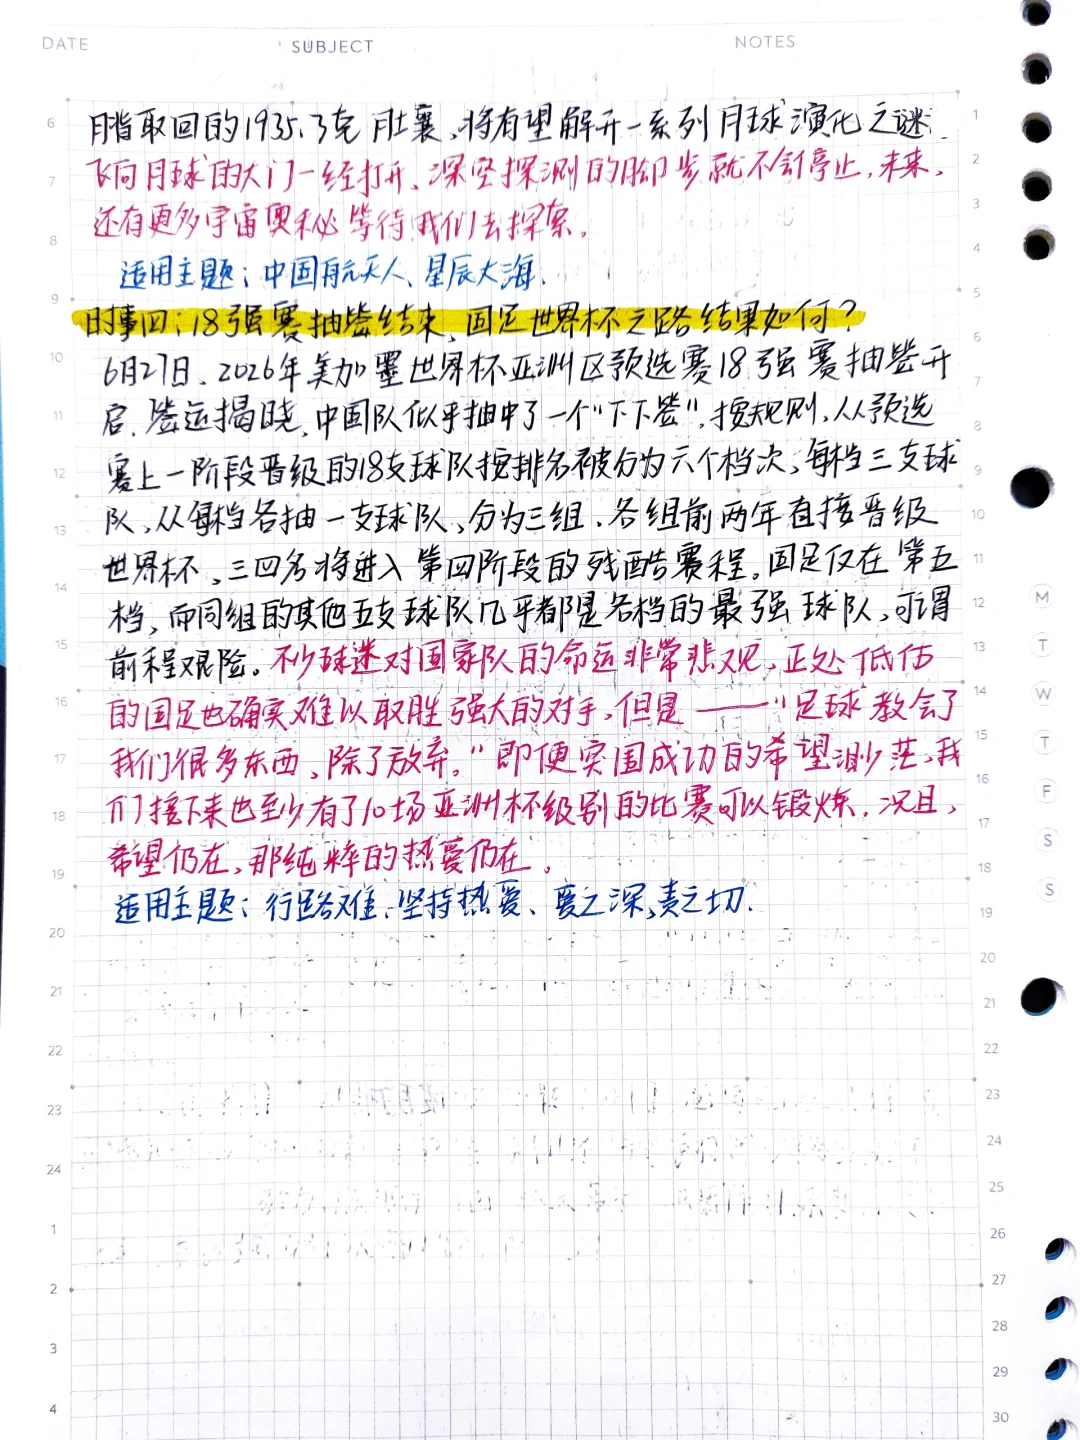 DATE SUBJECT NOTES
月背取回的1935.3克月壤,将有望解开一系列月球演化之谜.
飞向月球的大门一经打开,深空探测的脚步就不会停止,未来,
还有更多宇宙奥秘等待我们去探索。
适用主题:中国航天人、星辰大海.
时事四:18强赛抽签结束,国足世界杯之路结果如何?
6月27日、2026年美加墨世界杯亚洲区预选赛18强赛抽签开
启.签运揭晓,中国队似乎抽中了一个"下下签",按规则,从预选
赛上一阶段晋级的18支球队按排名被分为六个档次,每档三支球
队,从每档各抽一支球队,分为三组.各组前两年直接晋级
世界杯,三四名将进入第四阶段的残酷赛程。国足仅在第五
档,而同组的其他五支球队几乎都是各档的最强球队,可谓
前程艰险。不少球迷对国家队的命运非常悲观,正处低估
的国足也确实难以取胜强大的对手,但是——"足球教会了
我们很多东西,除了放弃。"即便突围成功的希望渺茫,我
们接下来也至少有了10场亚洲杯级别的比赛可以锻炼.况且,
希望仍在,那纯粹的热爱仍在。
适用主题:行路难、坚持热爱、爱之深,责之切.
6
7
8
9
10
11
12
13
14
15
16
17
18
19
20
21
22
23
24
1
2
3
4
1
2
3
4
5
6
7
8
9
10
11
12
13
14
15
16
17
18
19
20
21
22
23
24
25
26
27
28
29
30
M
T
W
T
F
S
S